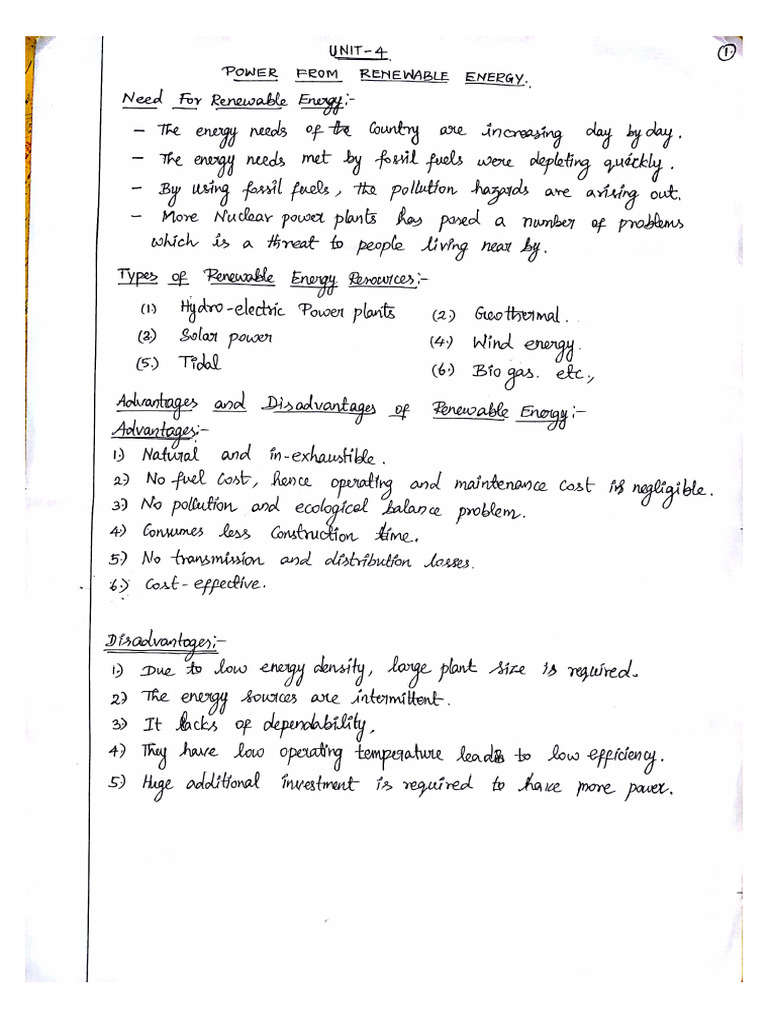 UNIT-4.
1.
POWER FROM RENEWABLE ENERGY.
Need For Renewable Energy:-
- The energy needs of the Country are increasing day by day.
- The energy needs met by fossil fuels were depleting quickly.
- By using fossil fuels, the pollution hazards are arising out.
- More Nuclear power plants has posed a number of problems
which is a threat to people living near by.
Types of Renewable Energy Resources:-
(1) Hydro-electric Power plants (2.) Geothermal.
(3) Solar power (4.) Wind energy.
(5.) Tidal (6.) Bio gas. etc.,
Advantages and Disadvantages of Renewable Energy:-
Advantages:-
1.) Natural and in-exhaustible.
2.) No fuel cost, hence operating and maintenance cost is negligible.
3.) No pollution and ecological balance problem.
4.) Consumes less Construction time.
5.) No transmission and distribution losses.
6.) Cost-effective.
Disadvantages:-
1.) Due to low energy density, large plant size is required.
2.) The energy sources are intermittent.
3.) It lacks of dependability,
4.) They have low operating temperature leads to low efficiency.
5.) Huge additional investment is required to have more power.